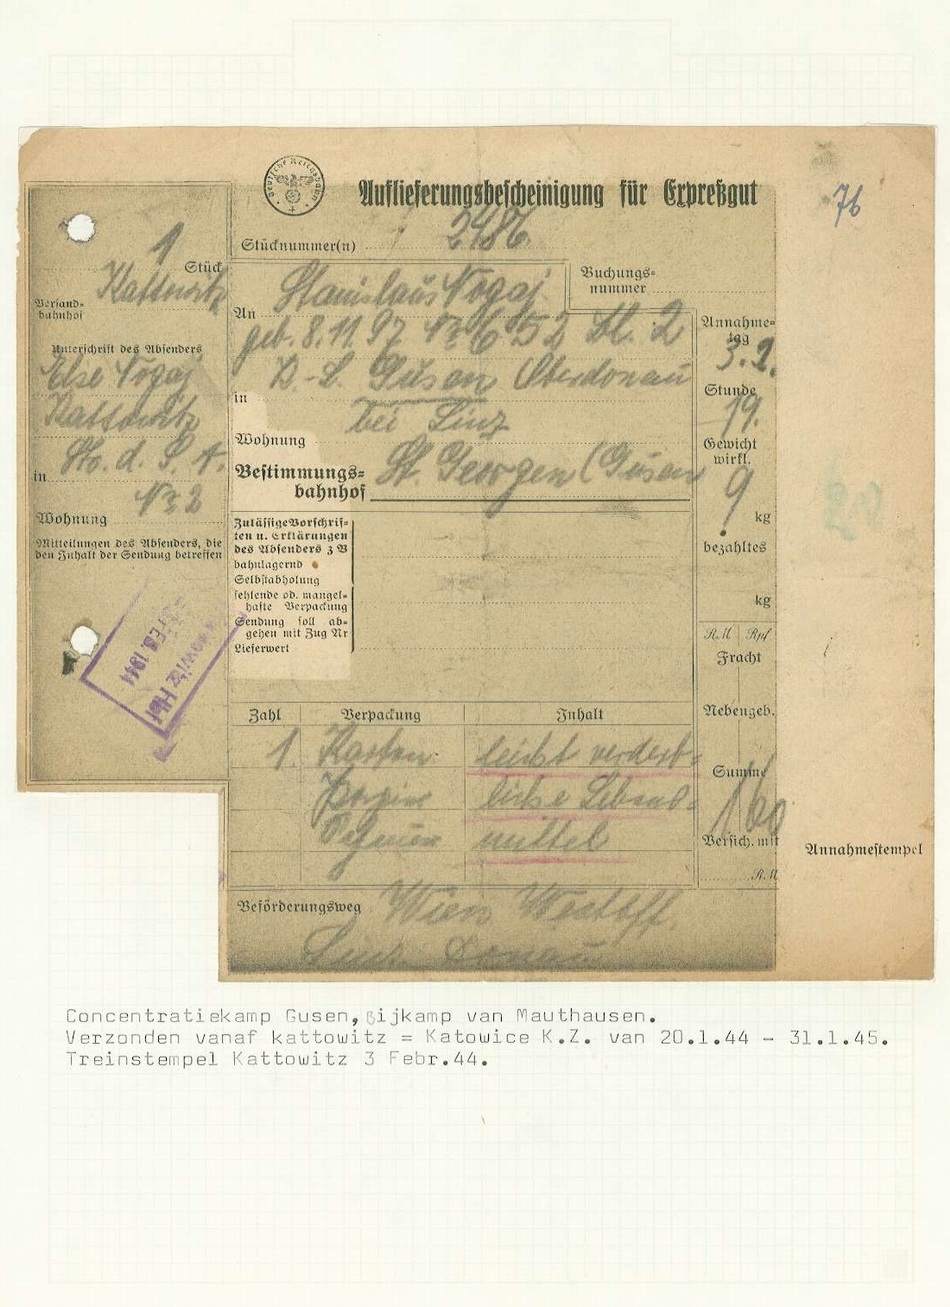 Deutsche Reichsbahn
Auflieferungsbescheinigung für Expreßgut
76
Stücknummer(n) 2486
1
Stück
Kattowitz
Versand-
bahnhof
Unterschrift des Absenders
Else Nogaj
Kattowitz
in Str. d. S. A.
Nr. 2
Wohnung
Mitteilungen des Absenders, die
den Inhalt der Sendung betreffen
Kattowitz Hbf
FEB. 1944
Buchungs-
nummer
An Stanislaus Nogaj
geb. 8.11.97 Nr. 652 Bl. 2
K.-L. Gusen Oberdonau
in
bei Linz
Wohnung
Bestimmungs-
bahnhof St. Georgen (Gusen
Zulässige Vorschrif-
ten u. Erklärungen
des Absenders z B
bahnlagernd
Selbstabholung
fehlende od. mangel-
hafte Verpackung
Sendung soll ab-
gehen mit Zug Nr
Lieferwert
Annahme-
tag
3.2.
Stunde
19.
Gewicht
wirkl.
9
kg
bezahltes
kg
RM Rpf
Fracht
Nebengeb.
Summe
160
Versich. mit
RM
Annahmestempel
Zahl Verpackung Inhalt
1. Karton leicht verderb-
liche Lebens-
mittel
Beförderungsweg Wien Westbf.
Linz Donau
Concentratiekamp Gusen, Bijkamp van Mauthausen.
Verzonden vanaf kattowitz = Katowice K.Z. van 20.1.44 - 31.1.45.
Treinstempel Kattowitz 3 Febr.44.